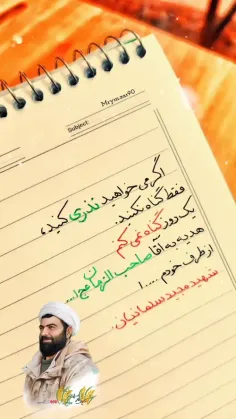 Mrymaas90
Subject:
اگر می خواهید نذری کنید،
فقط گناه نکنید.
یک روز گناه نمی کنم
هدیه به آقا صاحب الزمان عج ا...
از طرف خودم ....ا
شهید مجید سلمانیان.